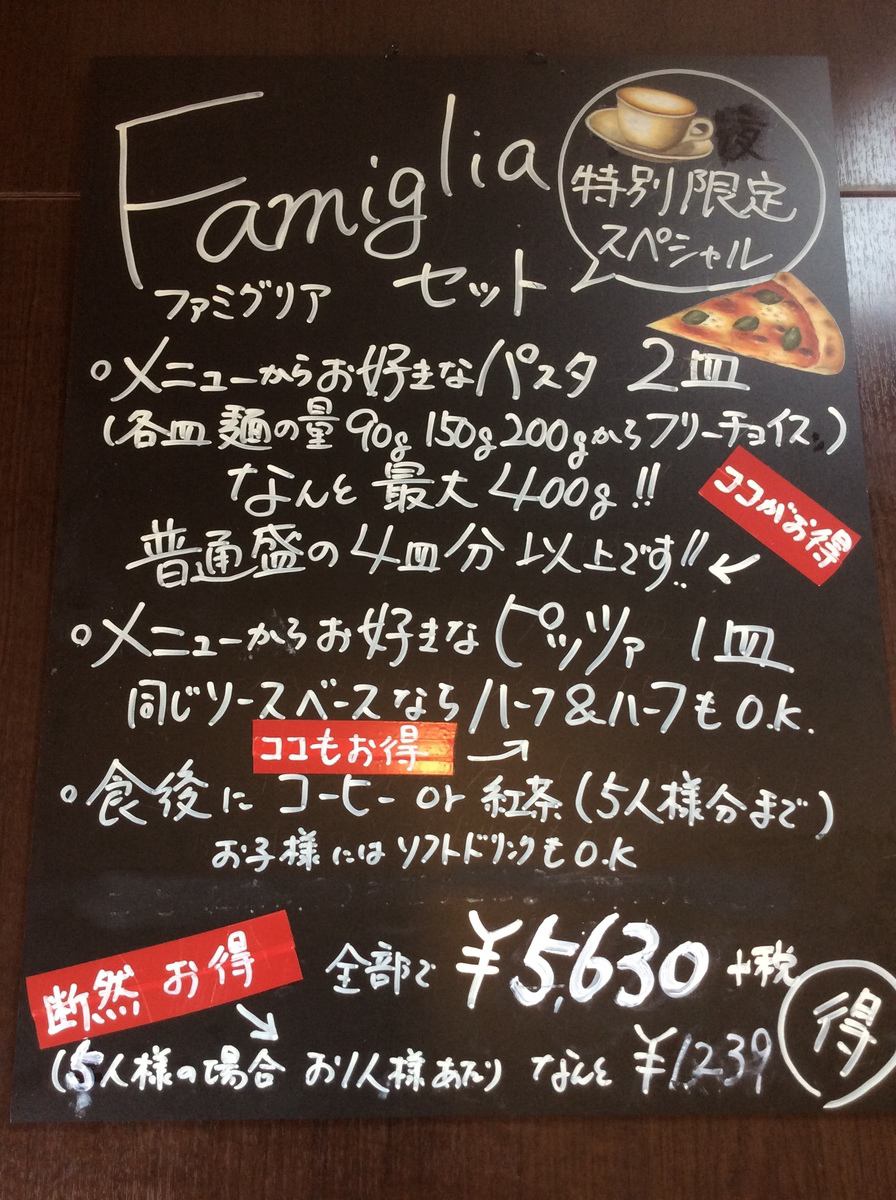 Famiglia
ファミグリア セット
夜
特別限定
スペシャル
○メニューからお好きなパスタ 2皿
(各皿 麺の量 90g 150g 200gからフリーチョイス)
なんと 最大 400g!!
ココがお得
普通盛の4皿分 以上です!! ↙
○メニューからお好きな ピッツァ 1皿
同じソースベースなら ハーフ&ハーフも O.K.
ココもお得 →
○食後に コーヒー or 紅茶 (5人様分まで)
お子様には ソフトドリンクも O.K
断然 お得
全部で ¥5,630 +税
得
(5人様の場合 お1人様あたり なんと ¥1239